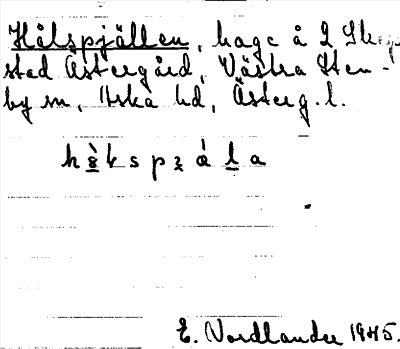 Hålspjällen, hage å 2 Skep
stad Östergård, Västra Sten-
by sn, Aska hd, Österg. l.
E. Nordlander 1945.